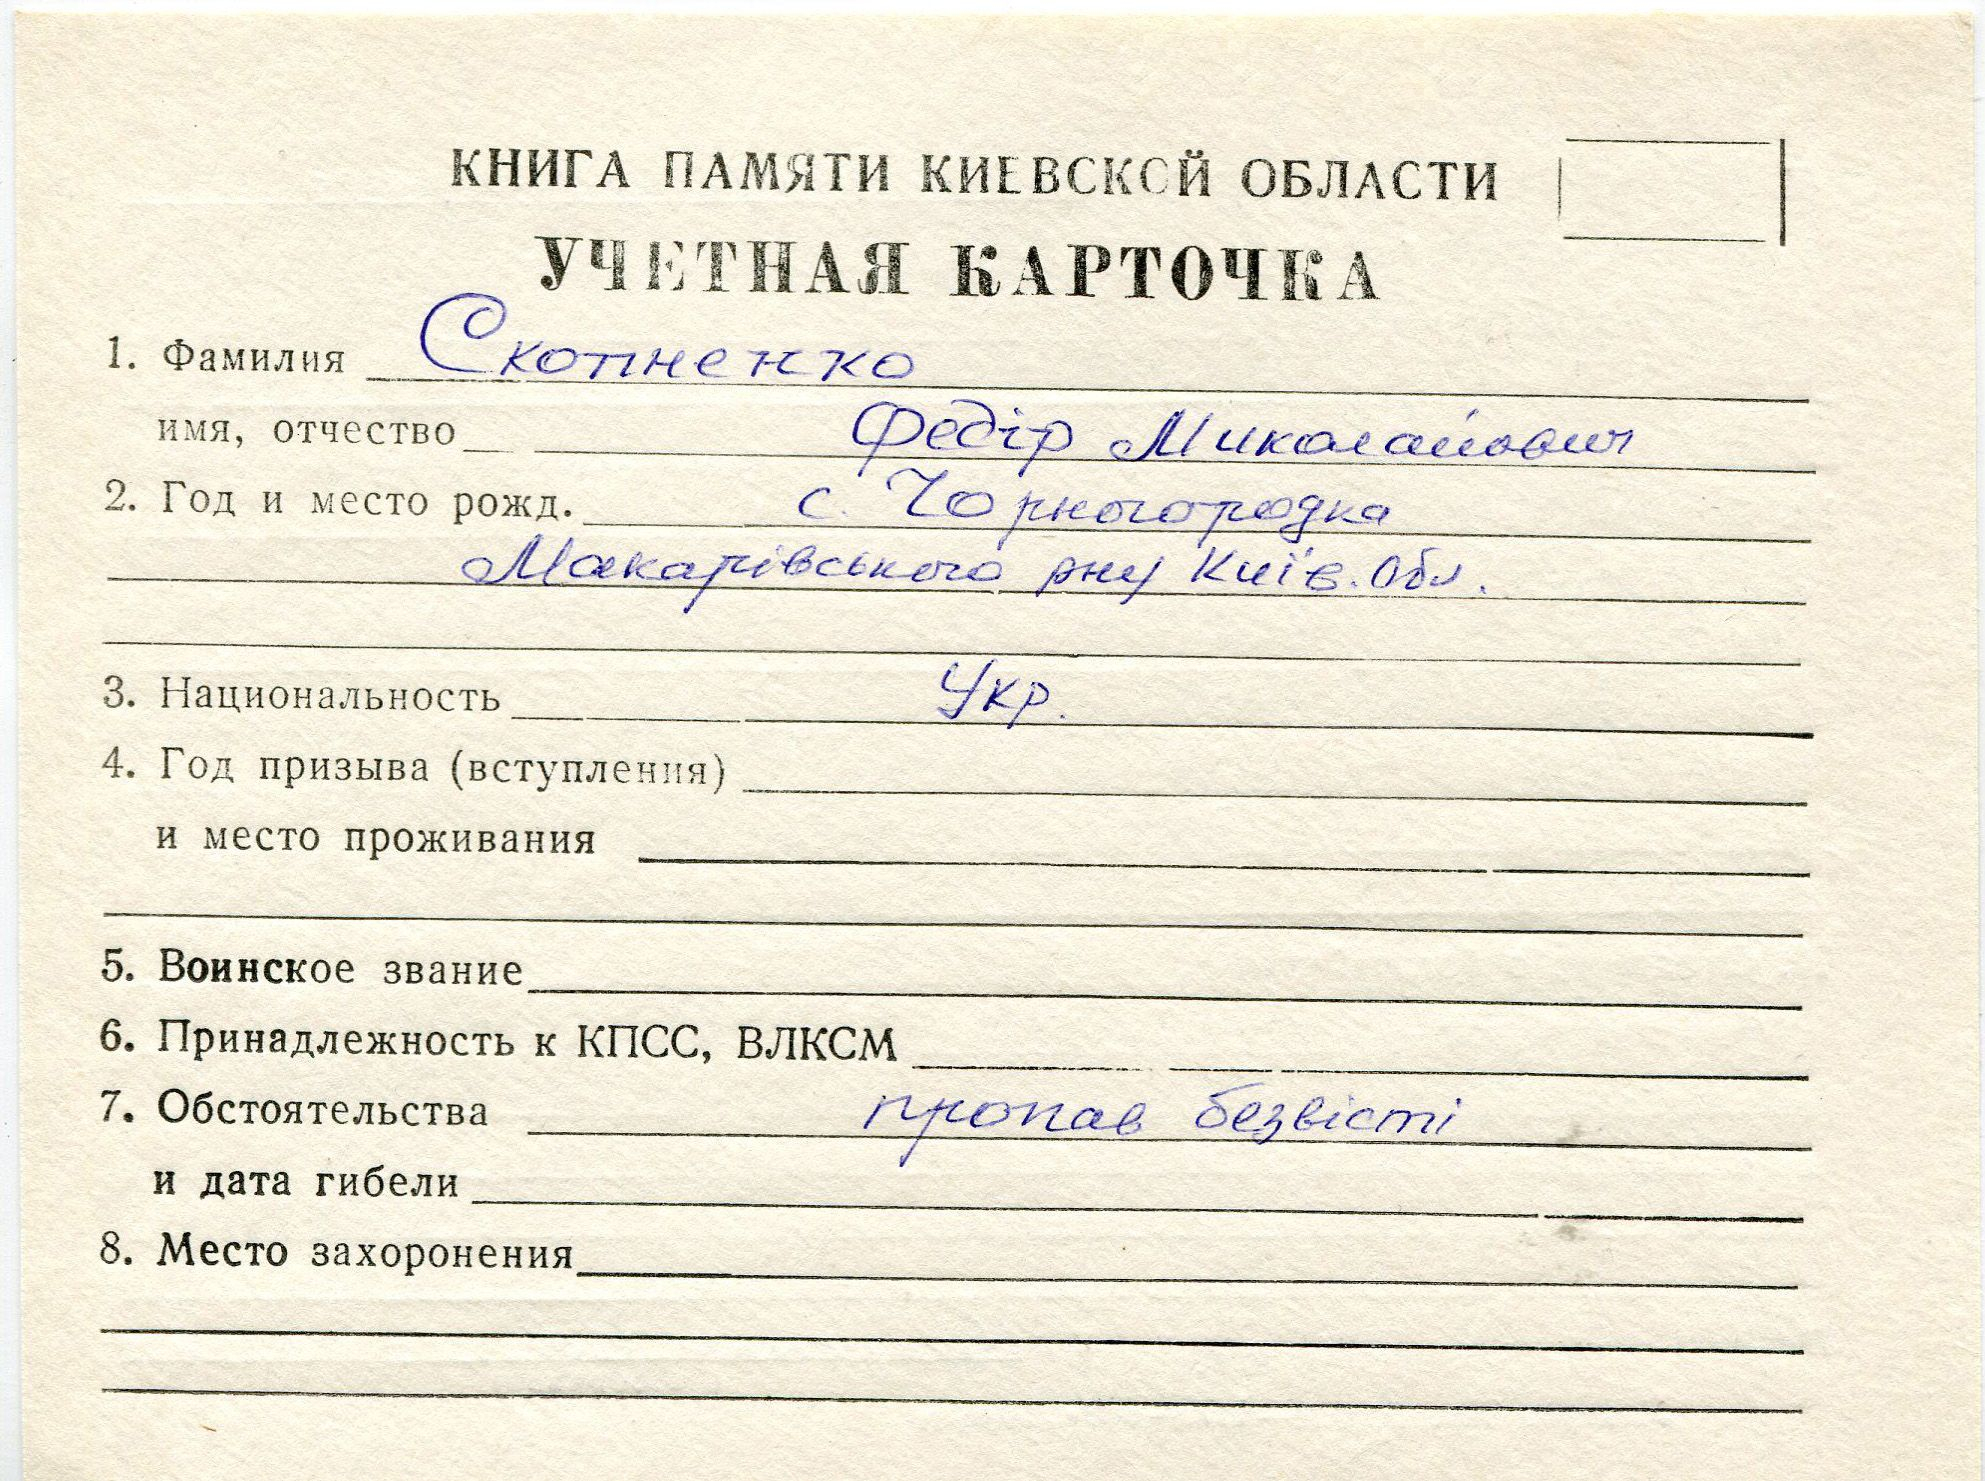 КНИГА ПАМЯТИ КИЕВСКОЙ ОБЛАСТИ
УЧЕТНАЯ КАРТОЧКА
1. Фамилия Скопненко
имя, отчество Федір Миколайович
2. Год и место рожд. с. Чорногородка
Макарівського рну Київ. обл.
3. Национальность Укр.
4. Год призыва (вступления)
и место проживания
5. Воинское звание
6. Принадлежность к КПСС, ВЛКСМ
7. Обстоятельства пропав безвісті
и дата гибели
8. Место захоронения